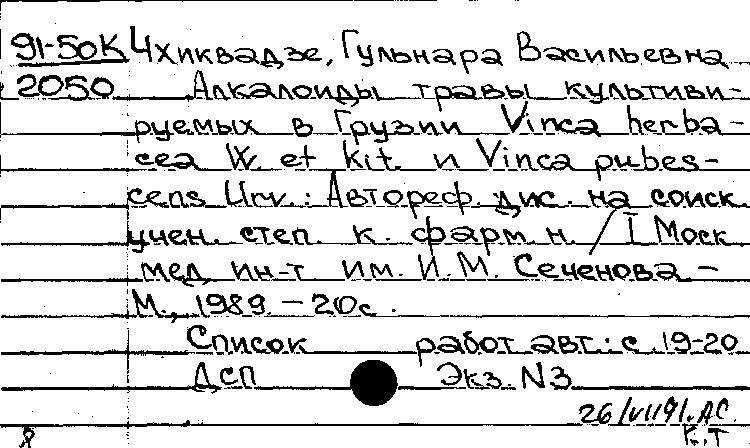 91-50К Чхиквадзе, Гульнара Васильевна
2050 Алкалоиды травы культиви-
руемых в Грузии Vinca herba-
cea W. et Kit. и Vinca pubes-
cens Urv.: Автореф. дис. на соиск
учен. степ. к. фарм. н. / I Моск
мед. ин-т им. И.М. Сеченова -
М., 1989. - 20с.
Список работ авт.: с. 19-20
ДСП Экз. N3
26/VII91. АС
8 К.Т